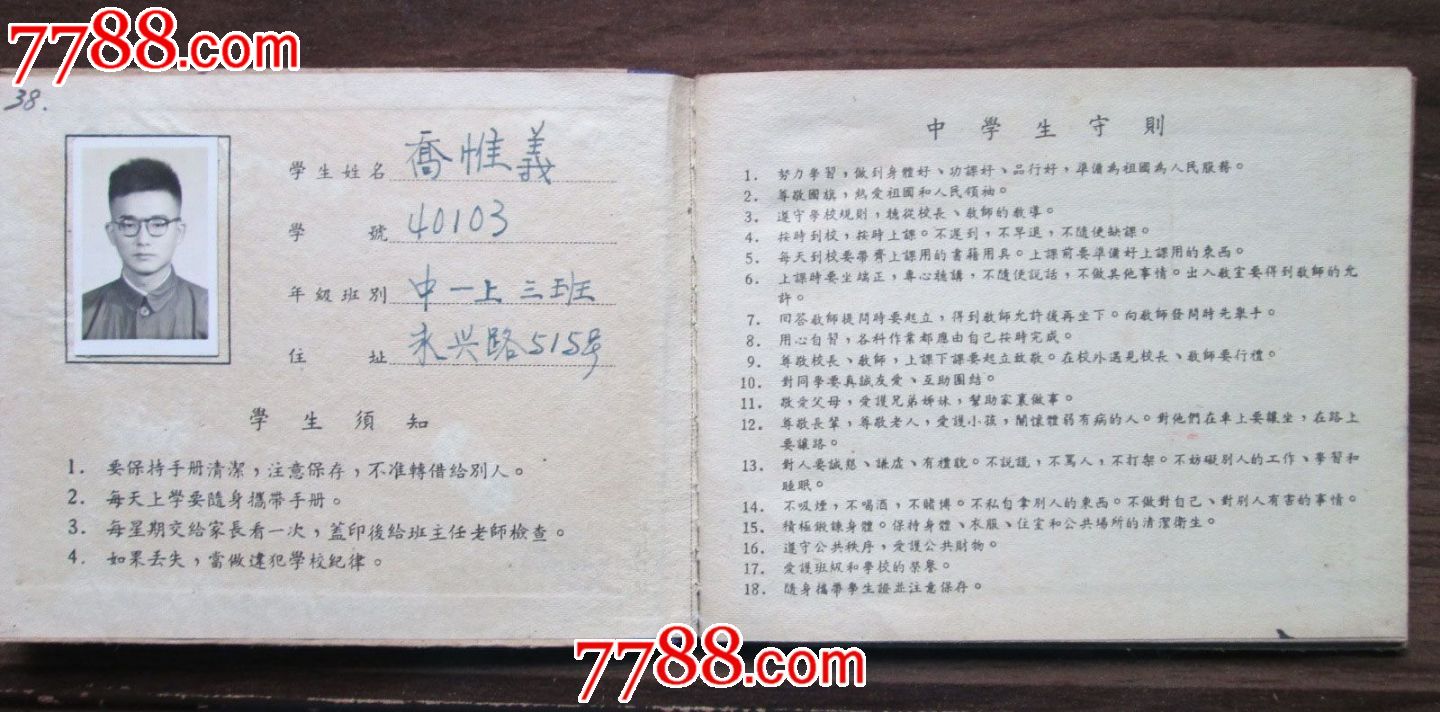 7788.com
38.
學生姓名 喬惟義
學號 40103
年級班別 中一上三班
住址 永兴路515号
學生須知
1. 要保持手册清潔，注意保存，不准轉借給別人。
2. 每天上學要隨身攜帶手册。
3. 每星期交給家長看一次，蓋印後給班主任老師檢查。
4. 如果丟失，當做違犯學校紀律。
中學生守則
1. 努力學習，做到身體好、功課好、品行好，準備為祖國為人民服務。
2. 尊敬國旗，熱愛祖國和人民領袖。
3. 遵守學校規則，聽從校長、教師的教導。
4. 按時到校，按時上課。不遲到，不早退，不隨便缺課。
5. 每天到校要帶齊上課用的書籍用具。上課前要準備好上課用的東西。
6. 上課時要坐端正，專心聽講，不隨便說話，不做其他事情。出入教室要得到教師的允
許。
7. 回答教師提問時要起立，得到教師允許後再坐下。向教師發問時先舉手。
8. 用心自習，各科作業都應由自己按時完成。
9. 尊敬校長、教師，上課下課要起立致敬。在校外遇見校長、教師要行禮。
10. 對同學要真誠友愛、互助團結。
11. 敬愛父母，愛護兄弟姊妹，幫助家裏做事。
12. 尊敬長輩，尊敬老人，愛護小孩，關懷體弱有病的人。對他們在車上要讓坐，在路上
要讓路。
13. 對人要誠懇、謙虛、有禮貌。不說謊，不罵人，不打架。不妨礙別人的工作、學習和
睡眠。
14. 不吸煙，不喝酒，不賭博。不私自拿別人的東西。不做對自己、對別人有害的事情。
15. 積極鍛鍊身體。保持身體、衣服、住室和公共場所的清潔衛生。
16. 遵守公共秩序，愛護公共財物。
17. 愛護班級和學校的榮譽。
18. 隨身攜帶學生證並注意保存。
7788.com